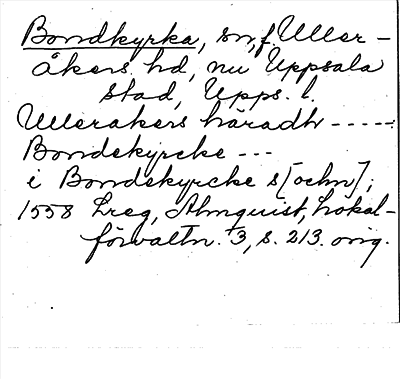 Bondkyrka, sn, f. Uller-
åkers hd, nu Uppsala
stad, Upps. l.
Ullerakers häradh -----
Bondekyrcke ---
i Bondekyrcke s[ochn];
1558 Lreg, Almquist, Lokal-
förvaltn. 3, s. 213. orig.